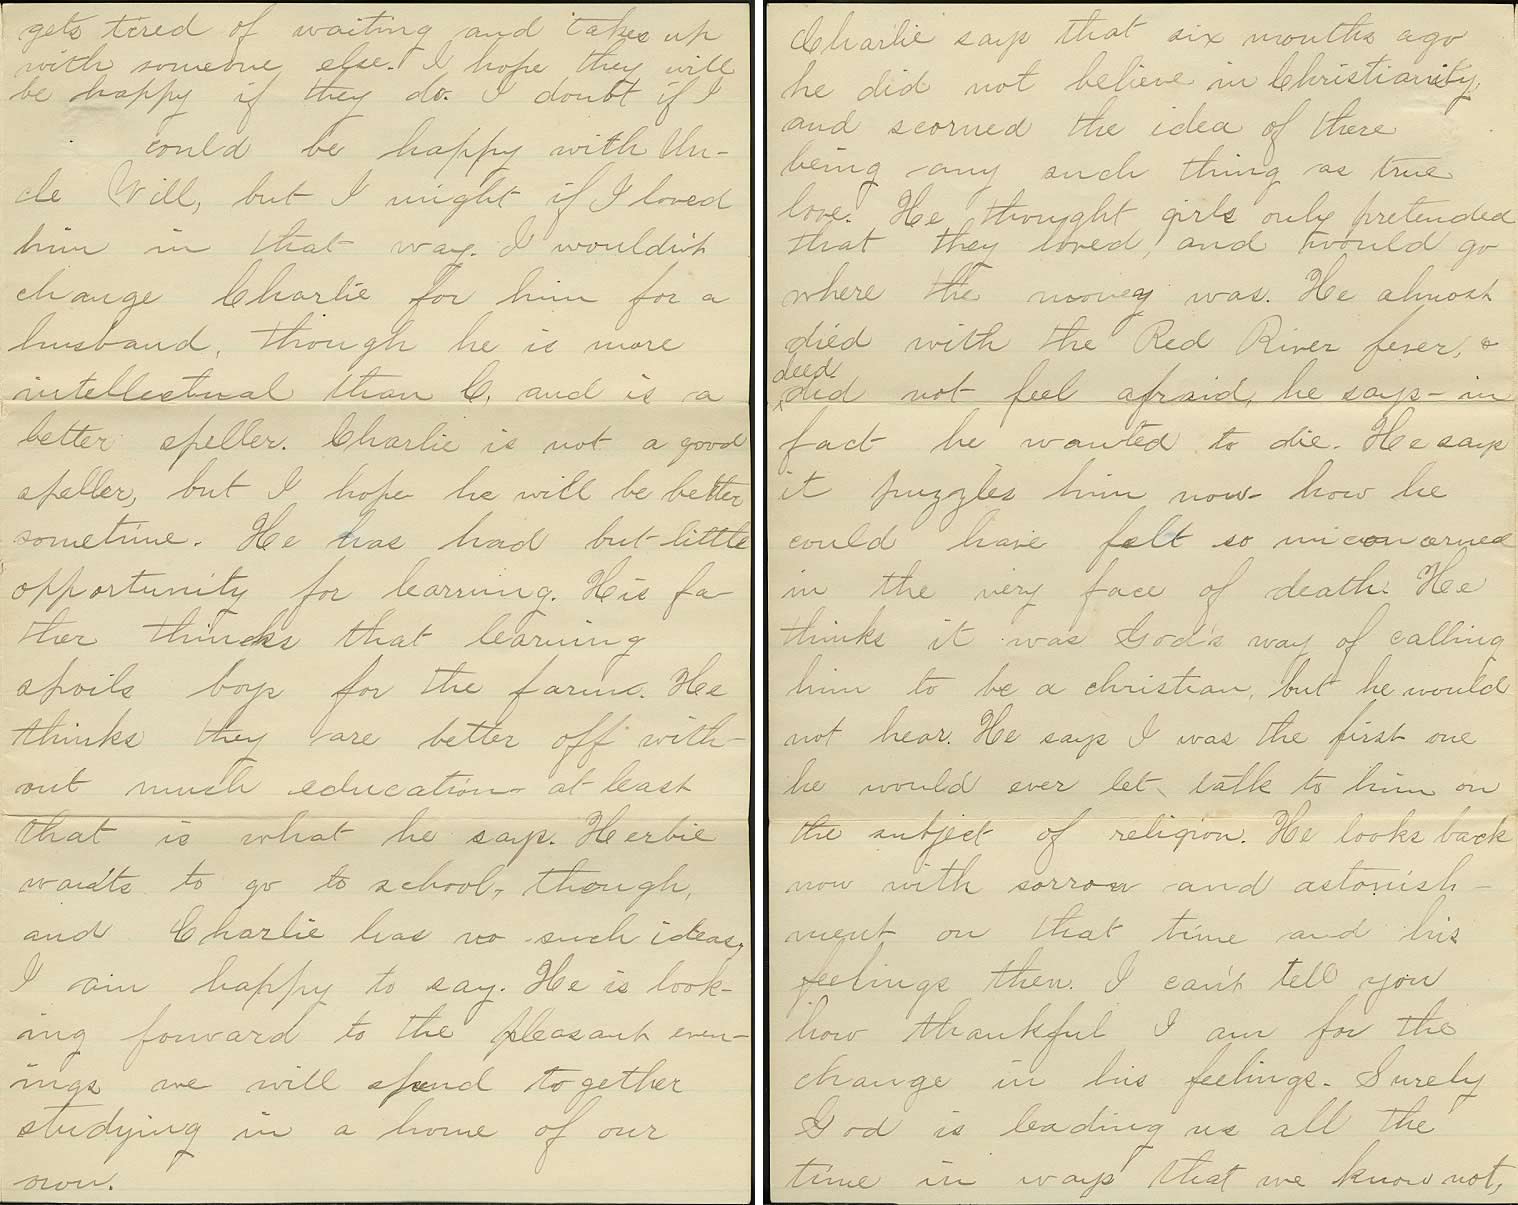 gets tired of waiting and takes up
with someone else. I hope they will
be happy if they do. I doubt if I
could be happy with Un-
cle Will, but I might if I loved
him in that way. I wouldn't
change Charlie for him for a
husband, though he is more
intellectual than C. and is a
better speller. Charlie is not a good
speller, but I hope he will be better
sometime. He has had but little
opportunity for learning. His fa-
ther thincks that learning
spoils boys for the farm. He
thinks they are better off with-
out much education - at least
that is what he says. Herbie
wants to go to school, though,
and Charlie has no such ideas,
I am happy to say. He is look-
ing forward to the pleasant even-
ings we will spend together
studying in a home of our
own.
Charlie says that six months ago
he did not believe in Christianity
and scorned the idea of there
being any such thing as true
love. He thought girls only pretended
that they loved, and would go
where the money was. He almost
died with the Red River fever, &
deed
did not feel afraid, he says - in
fact he wanted to die. He says
it puzzles him now - how he
could have felt so unconcerned
in the very face of death. He
thinks it was God's way of calling
him to be a christian, but he would
not hear. He says I was the first one
he would ever let talk to him on
the subject of religion. He looks back
now with sorrow and astonish-
ment on that time and his
feelings then. I can't tell you
how thankful I am for the
change in his feelings. Surely
God is leading us all the
time in ways that we know not,